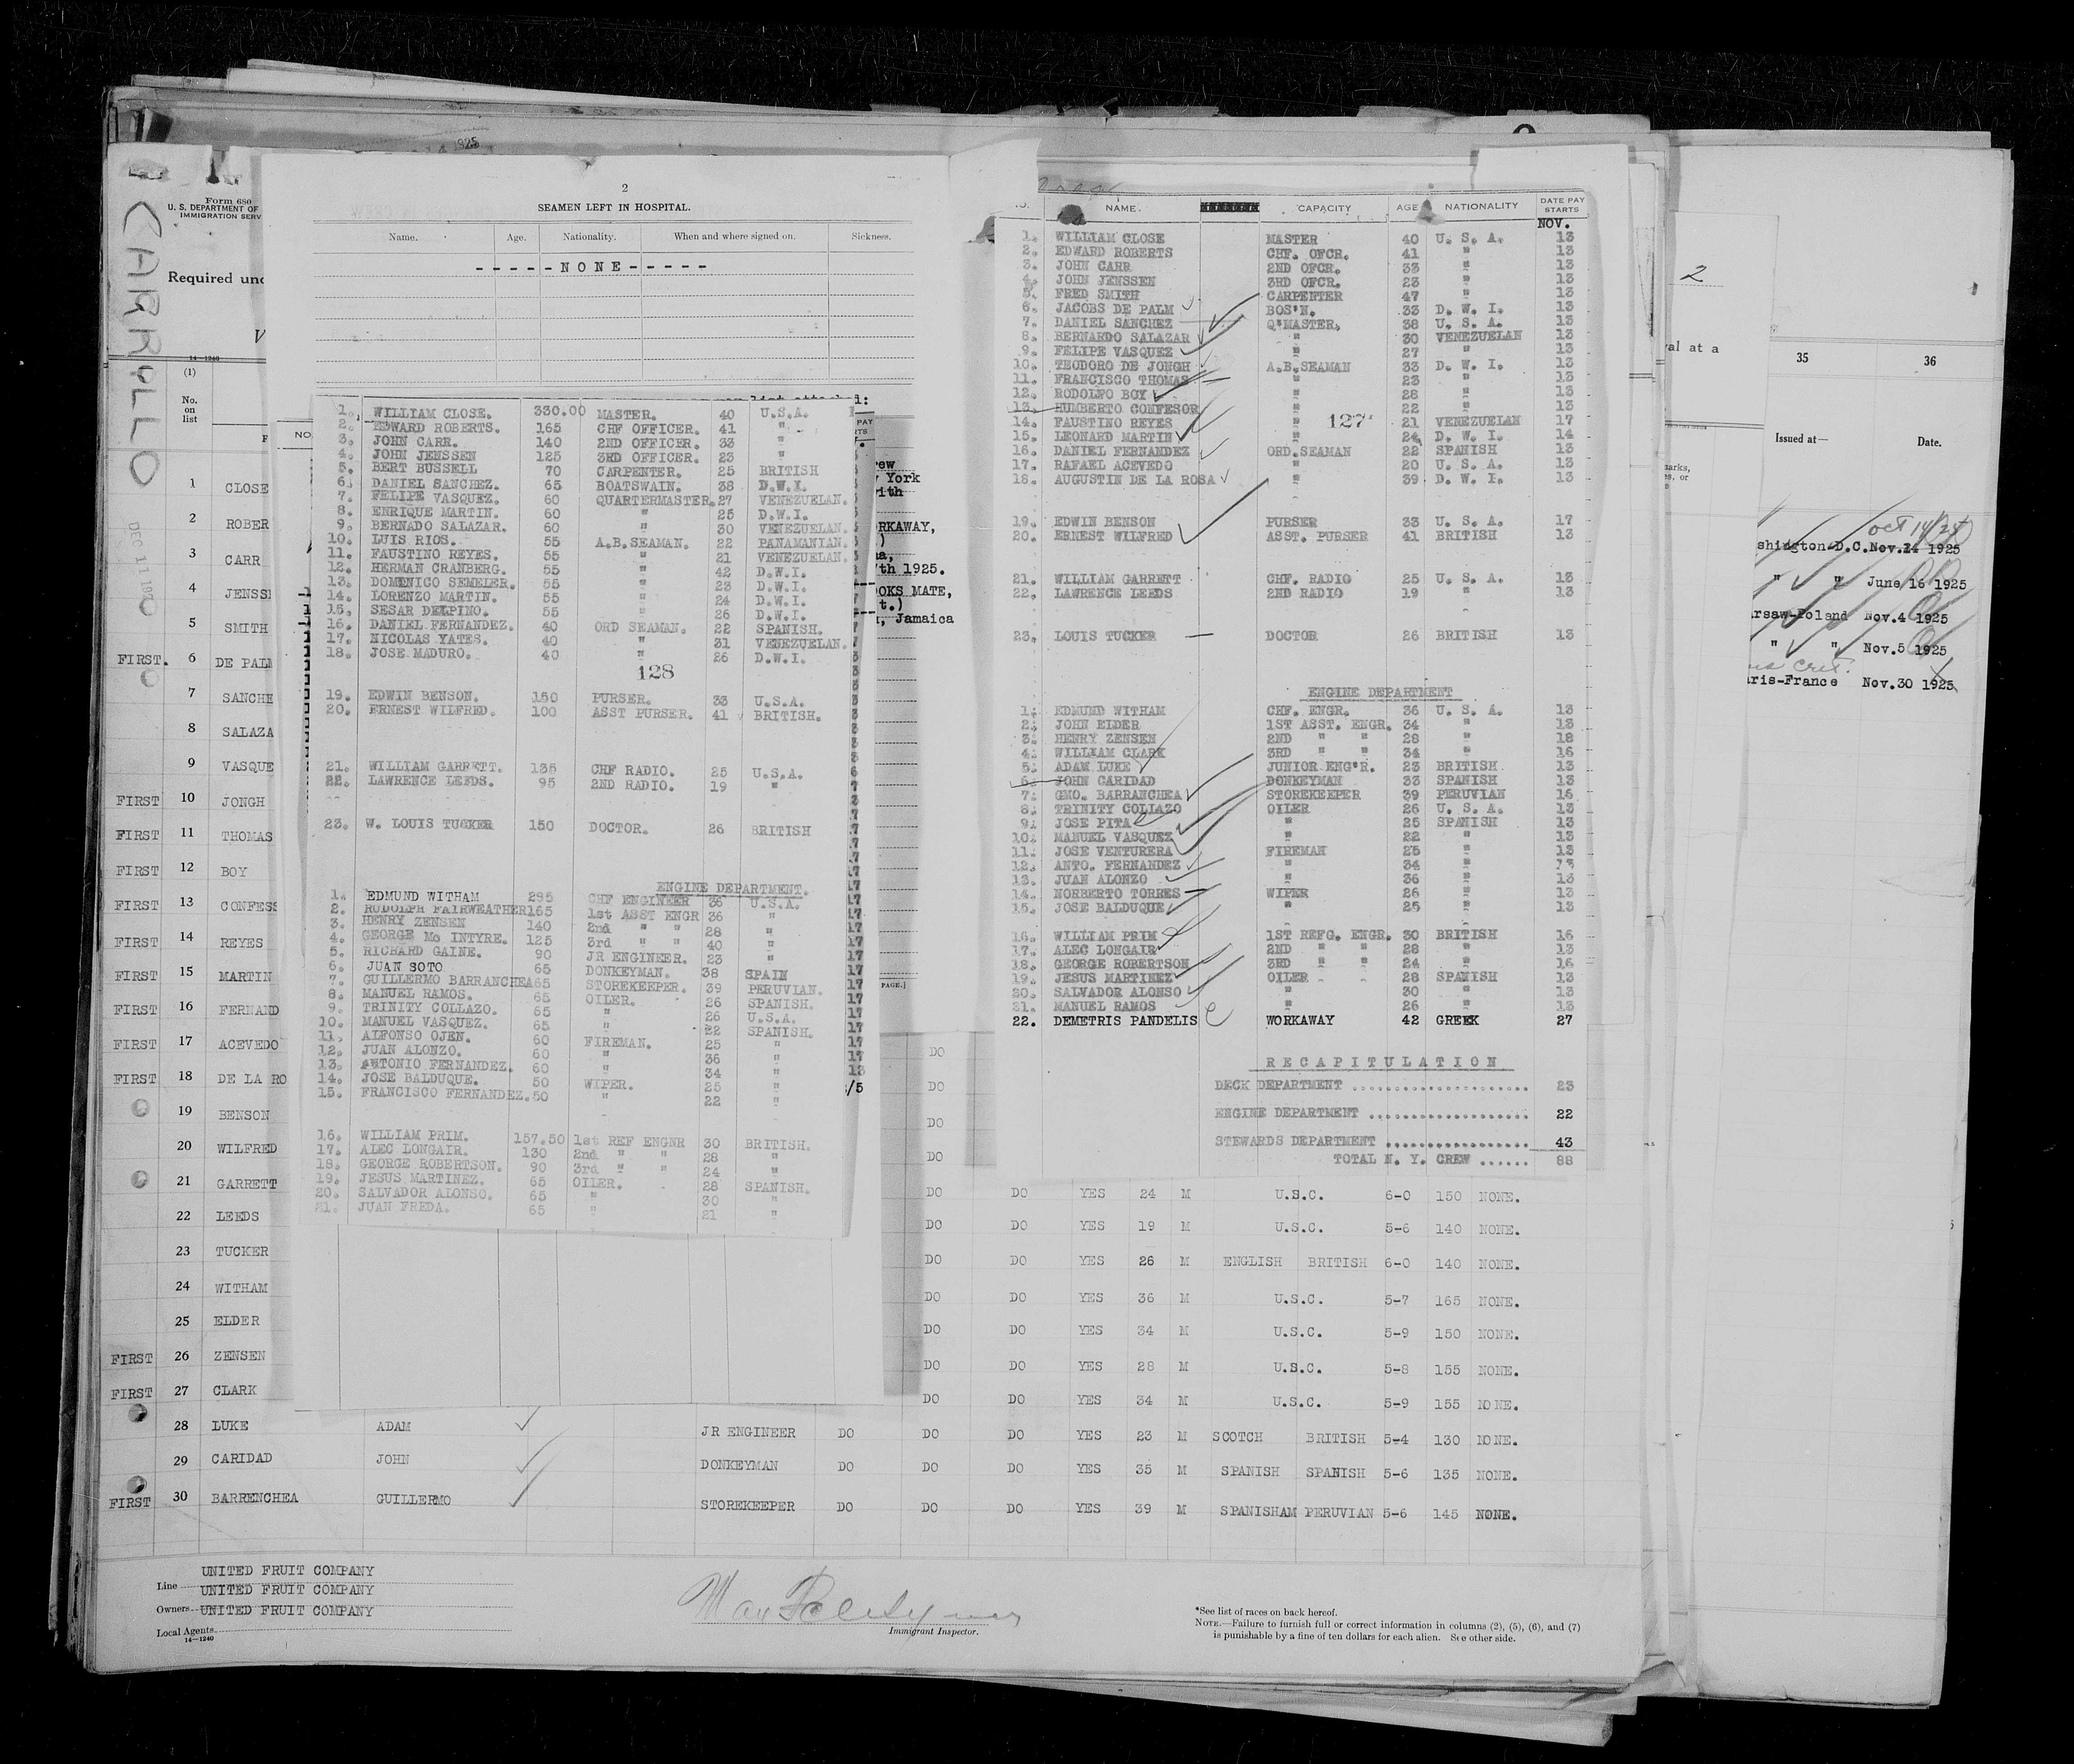 1925
Form 680
U. S. DEPARTMENT OF
IMMIGRATION SERV
CARRILLO
Required und
V
14—1240
(1)
No.
on
list
F
DEC 11 192
1 CLOSE
2 ROBER
3 CARR
4 JENSS
5 SMITH
FIRST. 6 DE PALM
7 SANCHE
8 SALAZA
9 VASQUE
FIRST 10 JONGH
FIRST 11 THOMAS
FIRST 12 BOY
FIRST 13 CONFESS
FIRST 14 REYES
FIRST 15 MARTIN
FIRST 16 FERNAND
FIRST 17 ACEVEDO
FIRST 18 DE LA RO
19 BENSON
20 WILFRED
21 GARRETT
22 LEEDS
23 TUCKER
24 WITHAM
25 ELDER
FIRST 26 ZENSEN
FIRST 27 CLARK
2
SEAMEN LEFT IN HOSPITAL.
Name. Age. Nationality. When and where signed on. Sickness.
-----NONE-----
NO
1. WILLIAM CLOSE. 330.00 MASTER. 40 U.S.A.
2. EDWARD ROBERTS. 165 CHF OFFICER. 41 "
3. JOHN CARR. 140 2ND OFFICER. 33 "
4. JOHN JENSSEN 125 3RD OFFICER. 23 "
5. BERT BUSSELL 70 CARPENTER. 25 BRITISH
6. DANIEL SANCHEZ. 65 BOATSWAIN. 38 D.W.I.
7. FELIPE VASQUEZ. 60 QUARTERMASTER. 27 VENEZUELAN.
8. ENRIQUE MARTIN. 60 " 25 D.W.I.
9. BERNADO SALAZAR. 60 " 30 VENEZUELAN.
10. LUIS RIOS. 55 A.B.SEAMAN. 22 PANAMANIAN.
11. FAUSTINO REYES. 55 " 21 VENEZUELAN.
12. HERMAN CRANBERG. 55 " 42 D.W.I.
13. DOMENICO SEMELER. 55 " 23 D.W.I.
14. LORENZO MARTIN. 55 " 24 D.W.I.
15. SESAR DELPINO. 55 " 26 D.W.I.
16. DANIEL FERNANDEZ. 40 ORD SEAMAN. 22 SPANISH.
17. NICOLAS YATES. 40 " 31 VENEZUELAN.
18. JOSE MADURO. 40 " 26 D.W.I.
128
19. EDWIN BENSON. 150 PURSER. 33 U.S.A.
20. ERNEST WILFRED. 100 ASST PURSER. 41 BRITISH.
21. WILLIAM GARRETT. 135 CHF RADIO. 25 U.S.A.
22. LAWRENCE LEEDS. 95 2ND RADIO. 19 "
23. W. LOUIS TUCKER 150 DOCTOR. 26 BRITISH
ENGINE DEPARTMENT.
1. EDMUND WITHAM 295 CHF ENGINEER 36 U.S.A.
2. RUDOLPH FAIRWEATHER 165 1st ASST ENGR 36 "
3. HENRY ZENSEN 140 2nd " " 28 "
4. GEORGE Mc INTYRE. 125 3rd " " 40 "
5. RICHARD GAINE. 90 JR ENGINEER. 23 "
6. JUAN SOTO 65 DONKEYMAN. 38 SPAIN
7. GUILLERMO BARRANCHEA 65 STOREKEEPER. 39 PERUVIAN.
8. MANUEL RAMOS. 65 OILER. 26 SPANISH.
9. TRINITY COLLAZO. 65 " 26 U.S.A.
10. MANUEL VASQUEZ. 65 " 22 SPANISH.
11. ALFONSO OJEN. 60 FIREMAN. 25 "
12. JUAN ALONZO. 60 " 36 "
13. ANTONIO FERNANDEZ. 60 " 34 "
14. JOSE BALDUQUE. 50 WIPER. 25 "
15. FRANCISCO FERNANDEZ. 50 " 22 "
16. WILLIAM PRIM. 157.50 1st REF ENGNR 30 BRITISH.
17. ALEC LONGAIR. 130 2nd " " 28 "
18. GEORGE ROBERTSON. 90 3rd " " 24 "
19. JESUS MARTINEZ. 65 OILER. 28 SPANISH.
20. SALVADOR ALONSO. 65 " 30 "
21. JUAN FREDA. 65 " 21 "
list attached:
rew
York
with
RKAWAY,
7th 1925.
OOKS MATE,
t.)
, Jamaica
PAGE.]
NAME. CAPACITY AGE NATIONALITY DATE PAY STARTS
NOV.
1. WILLIAM CLOSE MASTER 40 U. S. A. 13
2. EDWARD ROBERTS CHF. OFCR. 41 " 13
3. JOHN CARR 2ND OFCR. 33 " 13
4. JOHN JENSSEN 3RD OFCR. 23 " 13
5. FRED SMITH CARPENTER 47 " 13
6. JACOBS DE PALM BOS'N. 33 D. W. I. 13
7. DANIEL SANCHEZ Q'MASTER. 38 U. S. A. 13
8. BERNARDO SALAZAR " 30 VENEZUELAN 13
9. FELIPE VASQUEZ " 27 " 13
10. TEODORO DE JONGH A.B.SEAMAN 33 D. W. I. 13
11. FRANCISCO THOMAS " 23 " 13
12. RODOLFO BOY " 28 " 13
13. HUMBERTO CONFESOR " 22 " 13
14. FAUSTINO REYES " 127 21 VENEZUELAN 17
15. LEONARD MARTIN " 24 D. W. I. 14
16. DANIEL FERNANDEZ ORD.SEAMAN 22 SPANISH 13
17. RAFAEL ACEVEDO " 20 U. S. A. 13
18. AUGUSTIN DE LA ROSA " 39 D. W. I. 13
19. EDWIN BENSON PURSER 33 U. S. A. 17
20. ERNEST WILFRED ASST. PURSER 41 BRITISH 13
21. WILLIAM GARRETT CHF. RADIO 25 U. S. A. 13
22. LAWRENCE LEEDS 2ND RADIO 19 " 13
23. LOUIS TUCKER DOCTOR 26 BRITISH 13
ENGINE DEPARTMENT
1. EDMUND WITHAM CHF. ENGR. 36 U. S. A. 13
2. JOHN ELDER 1ST ASST. ENGR. 34 " 13
3. HENRY ZENSEN 2ND " " 28 " 18
4. WILLIAM CLARK 3RD " " 34 " 16
5. ADAM LUKE JUNIOR ENG'R. 23 BRITISH 13
6. JOHN CARIDAD DONKEYMAN 33 SPANISH 13
7. GMO. BARRANCHEA STOREKEEPER 39 PERUVIAN 16
8. TRINITY COLLAZO OILER 26 U. S. A. 13
9. JOSE PITA " 25 SPANISH 13
10. MANUEL VASQUEZ " 22 " 13
11. JOSE VENTURERA FIREMAN 25 " 13
12. ANTO. FERNANDEZ " 34 " 13
13. JUAN ALONZO " 36 " 13
14. NORBERTO TORRES WIPER 26 " 13
15. JOSE BALDUQUE " 25 " 13
16. WILLIAM PRIM 1ST REFG. ENGR. 30 BRITISH 16
17. ALEC LONGAIR 2ND " " 28 " 13
18. GEORGE ROBERTSON 3RD " " 24 " 16
19. JESUS MARTINEZ OILER 28 SPANISH 13
20. SALVADOR ALONSO " 30 " 13
21. MANUEL RAMOS " 26 " 13
22. DEMETRIS PANDELIS WORKAWAY 42 GREEK 27
RECAPITULATION
DECK DEPARTMENT .................... 23
ENGINE DEPARTMENT ................... 22
STEWARDS DEPARTMENT ................. 43
TOTAL N. Y. CREW ...... 88
2
val at a
35 36
Issued at— Date.
Oct 14/24
shington-D.C. Nov.24 1925
" " June 16 1925
rsaw-Poland Nov.4 1925
" " Nov.5 1925
ris-France Nov.30 1925
DO
DO
DO
DO
DO DO YES 24 M U.S.C. 6-0 150 NONE.
DO DO YES 19 M U.S.C. 5-6 140 NONE.
DO DO YES 26 M ENGLISH BRITISH 6-0 140 NONE.
DO DO YES 36 M U.S.C. 5-7 165 NONE.
DO DO YES 34 M U.S.C. 5-9 150 NONE.
DO DO YES 28 M U.S.C. 5-8 155 NONE.
DO DO YES 34 M U.S.C. 5-9 155 NONE.
28 LUKE ADAM JR ENGINEER DO DO DO YES 23 M SCOTCH BRITISH 5-4 130 NONE.
29 CARIDAD JOHN DONKEYMAN DO DO DO YES 35 M SPANISH SPANISH 5-6 135 NONE.
FIRST 30 BARRENCHEA GUILLERMO STOREKEEPER DO DO DO YES 39 M SPANISHAM PERUVIAN 5-6 145 NONE.
UNITED FRUIT COMPANY
Line UNITED FRUIT COMPANY
Owners UNITED FRUIT COMPANY
Local Agents
14—1240
Immigrant Inspector.
*See list of races on back hereof.
NOTE.—Failure to furnish full or correct information in columns (2), (5), (6), and (7)
is punishable by a fine of ten dollars for each alien. See other side.